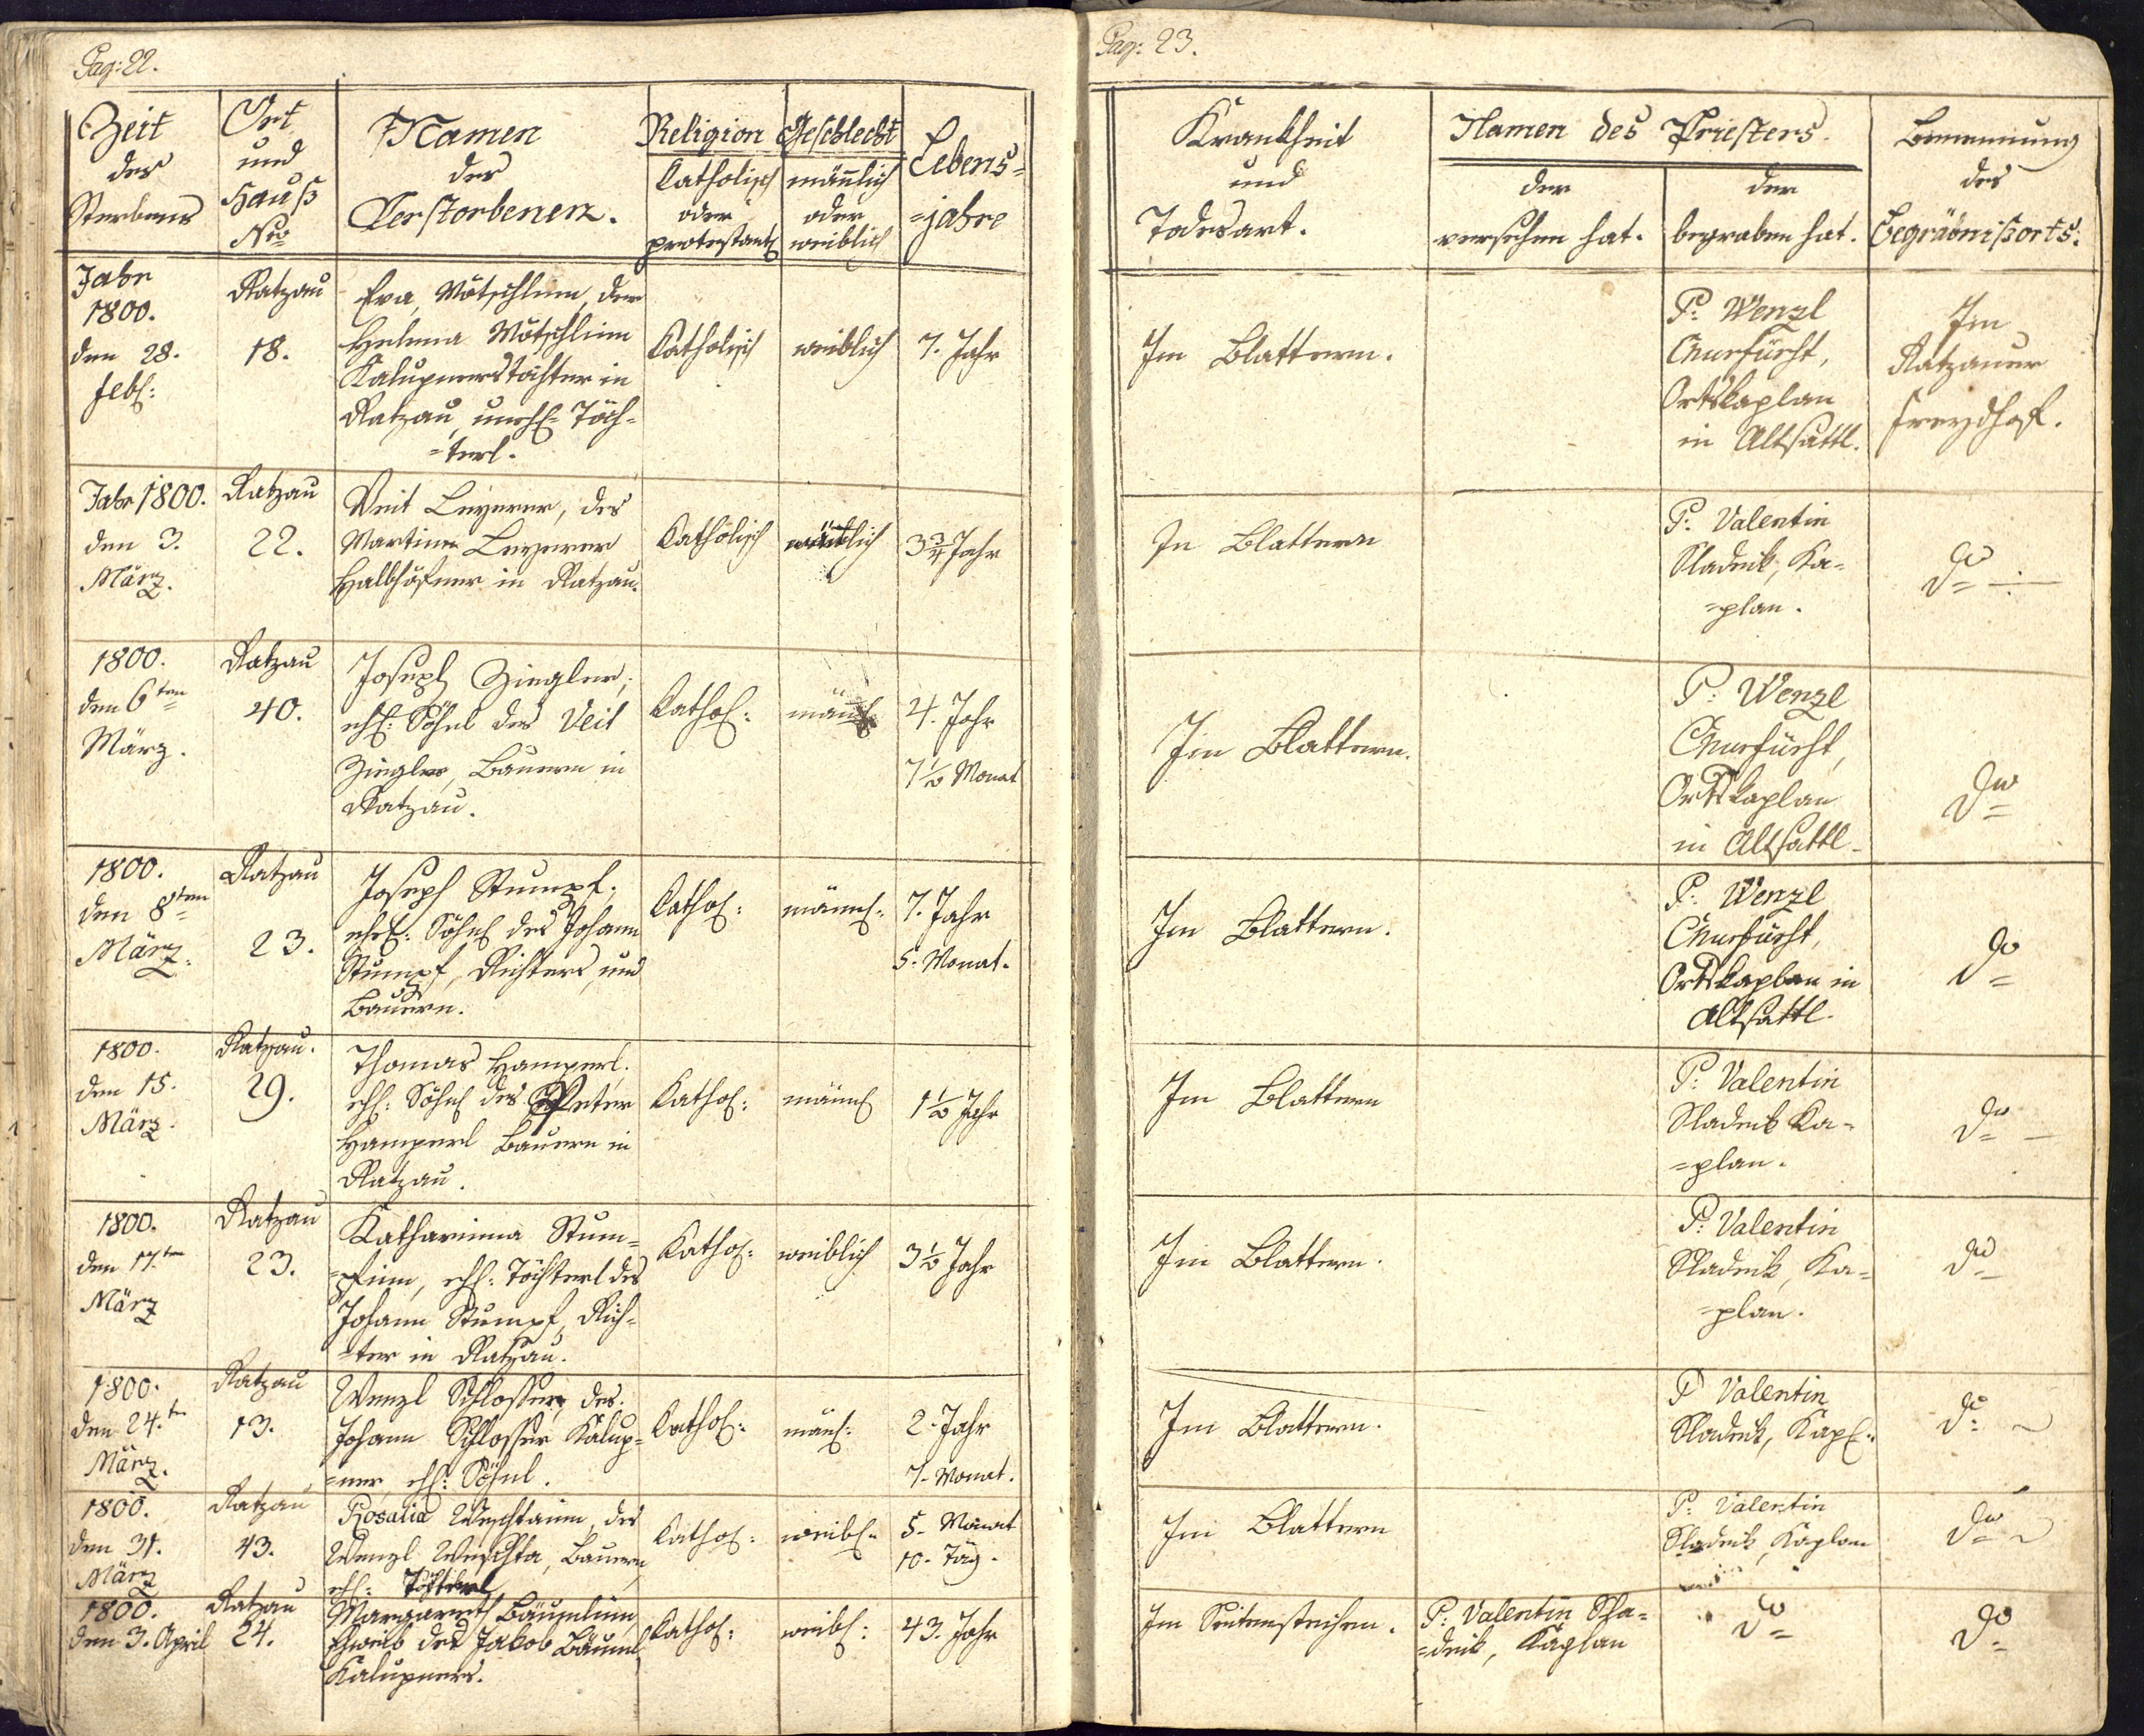 Pag: 22.
Zeit
des
Sterbens
Ort
und
Hauß
Nro
Namen
der
Verstorbenen.
Religion
Katholisch
oder
protestant
Geschlecht
mänlich
oder
weiblich
Lebens=
=jahre
Jahr
1800.
den 28.
feb:
Ratzau
18.
Eva, der
Helena
Kalupnerstochter in
Ratzau, Töch=
=terl.
Katholisch
weiblich
7. Jahr
Jahr 1800.
den 3.
März.
Ratzau
22.
Veit Leyerer, des
Martin Leyerer
Halbhöfner in Ratzau.
Katholisch
3 3/4 Jahr
1800.
den 6ten
März.
Ratzau
40.
Joseph Ziegler,
ehl: Söhnl des Veit
Ziegler, Bauern in
Ratzau.
Kathol:
mänl
4. Jahr
7 1/2 Monat
1800.
den 8ten
März.
Ratzau
23.
Joseph Stumpf,
ehel: Söhnl des Johann
Stumpf, Richters, und
Bauern.
Kathol:
männl:
7. Jahr
5. Monat.
1800.
den 15.
März.
Ratzau.
29.
Thomas Hamperl.
ehl: Söhnl des Peter
Hamperl Bauern in
Ratzau.
Kathol:
männl
1 1/2 Jahr
1800.
den 17.ten
März
Ratzau
23.
Katharinna Stum=
=pfinn, ehl: Töchterl des
Johann Stumpf, Rich=
=ter in Ratzau.
Kathol:
weiblich
3 1/2 Jahr
1800.
den 24.ten
März.
Ratzau
13.
Wenzl Schlosser, des
Johann Schlosser Kalup=
=ner, ehl: Söhnl.
Kathol:
mänl:
2. Jahr
7. Monat.
1800.
den 31.
März
Ratzau
43.
Rosalia des
Wenzl Bauern,
ehl: Töchterl
Kathol:
weibl:
5. Monat
10. Täg.
1800.
den 3. April
Ratzau
24.
Margareth Bäumlinn,
Eheweib des Jakob Bäuml
Kalupners.
Kathol:
weibl:
43. Jahr
Pag: 23.
Krankheit
und
Todesart.
Namen des Priesters.
der
versehen hat.
der
begraben hat.
Benennung
des
Begräbnißorts.
Im Blattern.
P. Wenzl
Ortskaplan
in Altsattl.
Im
Ratzauer
Freydhof.
In Blattern
P. Valentin
Sladeck, Ka=
=plan.
do
Im Blattern.
P: Wenzl
Ortskaplan
in Altsattl.
do
Im Blattern.
P. Wenzl
Ortskaplan in
Altsattl.
do
Im Blattern
P: Valentin
Sladeck Ka=
=plan.
do
Im Blattern.
P: Valentin
Sladeck, Ka=
=plan.
do
Im Blattern.
P Valentin
Sladeck, Kapl:
do
Im Blattern
P: Valentin
Sladeck, Kaplan
do
Im Seitenstechen.
P: Valentin Sla=
=deck, Kaplan
do
do